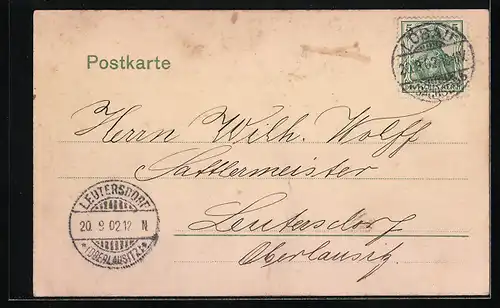 Postkarte
5
LÖBAU
Herrn Wilh. Wolff
Sattlermeister
Leutersdorf
Oberlausitz
LEUTERSDORF
20. 8 02.12 N
*(OBERLAUSITZ)*